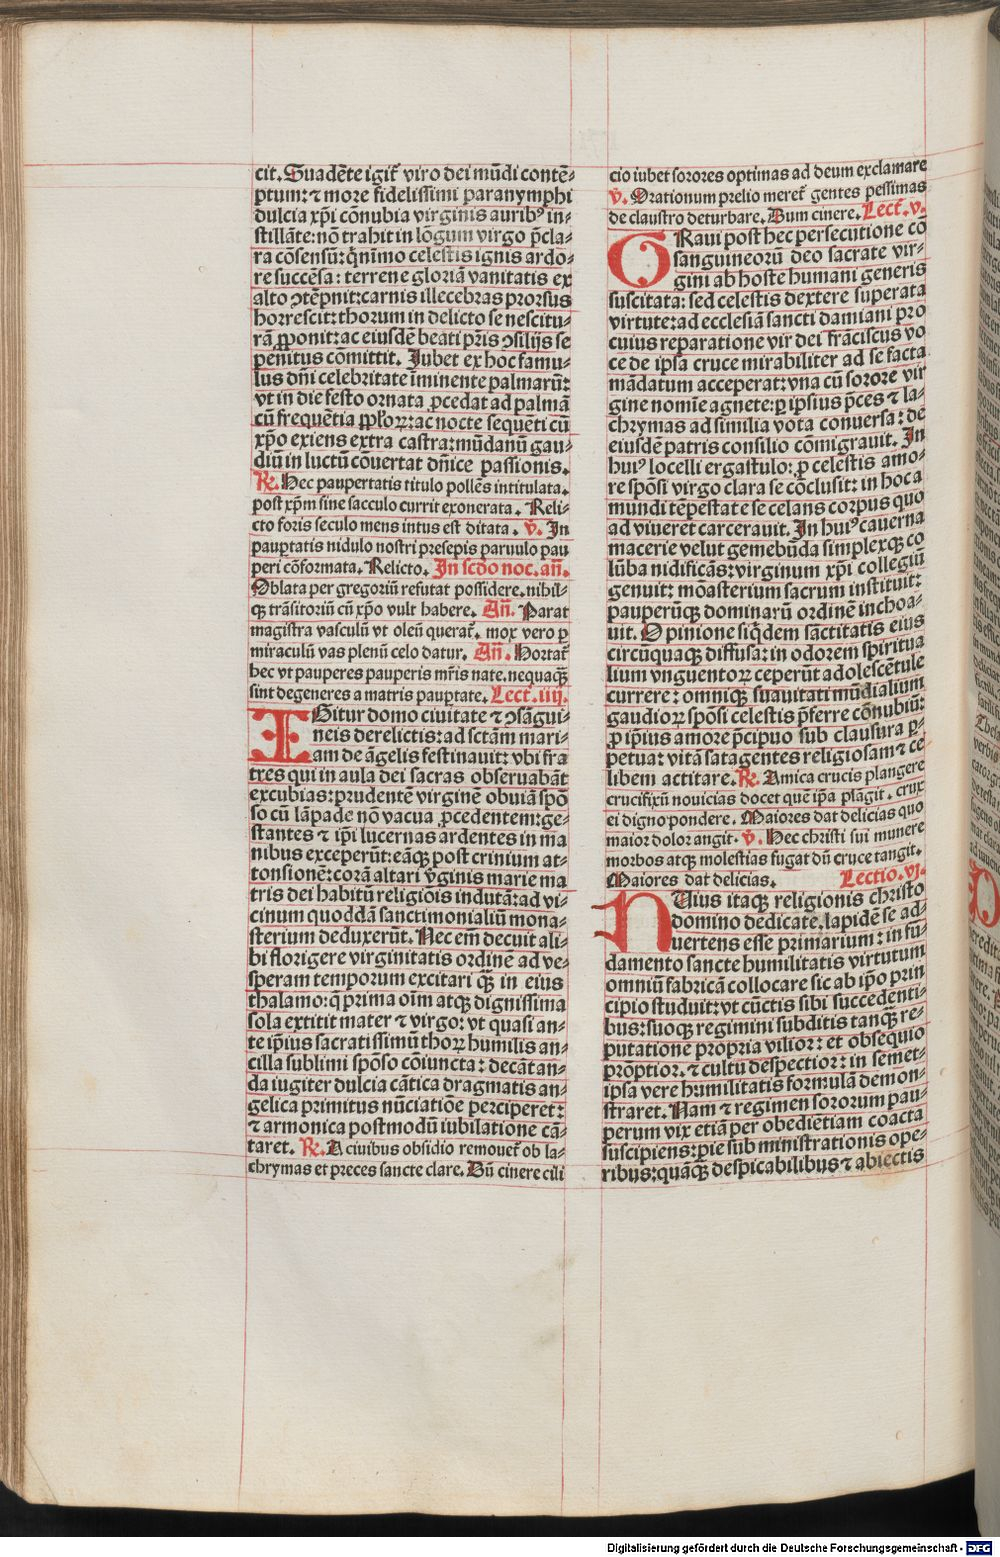 cit. Suadēte igit᷑ viro dei mūdi contē⸗
ptum: ⁊ more fidelissimi paranymphi
dulcia xp̄i cōnubia virginis auribꝰ in⸗
stillāte: nō trahit in lōgum virgo p̄cla⸗
ra cōsensū: qͥnimo celestis ignis ardo⸗
re succēsa: terrene gloriā vanitatis ex
alto ↄtēpnit: carnis illecebras prorsus
horrescit: thorum in delicto se nescitu⸗
rā ꝓponit: ac eiusdē beati pr̄is ↄsilijs se
penitus cōmittit. Jubet ex hoc famu⸗
lus dn̄i celebritate īminente palmarū:
vt in die festo ornata ꝓcedat ad palmā
cū frequētia ppl'oꝝ: ac nocte sequēti cū
xp̄o exiens extra castra: mūdanū gau⸗
diū in luctū cōuertat dn̄ice passionis.
℟. Hec paupertatis titulo pollēs intitulata.
post xp̄m sine sacculo currit exonerata. Reli⸗
cto foris seculo mens intus est ditata. ℣. In
pauꝑtatis nidulo nostri presepis paruulo pau
peri cōformata. Relicto. In scd̄o noc. an̄.
Oblata per gregoriū refutat possidere. nihil⸗
qꝫ trāsitoriū cū xp̄o vult habere. An̄. Parat
magistra vasculū vt oleū querat᷑. mox vero ꝑ
miraculū vas plenū celo datur. An̄. Hortat᷑
hec vt pauperes pauperis mr̄is nate. nequaqꝫ̄
sint degeneres a matris pauꝑtate. Lect. iiij.
IGitur domo ciuitate ⁊ ↄsāgui⸗
neis derelictis: ad sctām mari⸗
am de āgelis festinauit: vbi fra
tres qui in aula dei sacras obseruabāt
excubias: prudentē virginē obuiā spō
so cū lāpade nō vacua ꝓcedentem: ge⸗
stantes ⁊ ip̄i lucernas ardentes in ma
nibus exceperūt: eāqꝫ post crinium at⸗
tonsionē: corā altari v̄ginis marie ma
tris dei habitū religiōis indutā: ad vi⸗
cinum quoddā sanctimonialiū mona⸗
sterium deduxerūt. Nec em̄ decuit ali⸗
bi florigere virginitatis ordinē ad ve⸗
speram temporum excitari qꝫ̄ in eius
thalamo: q̄ prima oīm atqꝫ dignissima
sola extitit mater ⁊ virgo: vt quasi an⸗
te ip̄ius sacratissimū thoꝝ humilis an⸗
cilla sublimi spōso cōiuncta: decāt an⸗
da iugiter dulcia cātica dragmatis an⸗
gelica primitus nūciatiōe perciperet:
⁊ armonica postmodū iubilatione cā⸗
taret. ℟. A ciuibus obsidio remouet᷑ ob la⸗
chrymas et preces sancte clare. Dū cinere cili
cio iubet sorores optimas ad deum exclamare
℣. Orationum prelio meret᷑ gentes pessimas
de claustro deturbare. Dum cinere. Lect. v.
GRaui post hec persecutione cō
sanguineorū deo sacrate vir⸗
gini ab hoste humani generis
suscitata: sed celestis dextere superata
virtute: ad ecclesiā sancti damiani pro
cuius reparatione vir dei frāciscus vo
ce de ipsa cruce mirabiliter ad se facta
mādatum acceperat: vna cū sorore vir
gine nomīe agnete: ꝑ ipsius p̄ces ⁊ la⸗
chrymas ad similia vota conuersa: de
eiusdē patris consilio cōmigrauit. In
huiꝰ locelli ergastulo: ꝓ celestis amo⸗
re spōsi virgo clara se cōclusit: in hoc a
mundi tēpestate se celans corpus quo
ad viueret carcerauit. In huiꝰ cauerna
macerie velut gemebūda simplexqꝫ co
lūba nidificās: virginum xp̄i collegiū
genuit: mōasterium sacrum instituit:
pauperūqꝫ dominarū ordinē inchoa⸗
uit. Opinione siqͥdem sāctitatis eius
circūquaqꝫ diffusa: in odorem spiritua
lium vnguentoꝝ ceperūt adolescētule
currere: omniqꝫ suauitati mūdialium
gaudioꝝ spōsi celestis p̄ferre cōnubiū:
ꝓ ip̄ius amore p̄cipuo sub clausura ꝑ⸗
petua: vitā satagentes religiosam ⁊ ce
libem actitare. ℟. Amica crucis plangere
crucifixū nouicias docet quē ip̄a plāgit. crux
ei digno pondere. Maiores dat delicias quo
maior dolor angit. ℣. Hec christi sui munere
morbos atqꝫ molestias fugat dū cruce tangit.
Maiores dat delicias. Lectio. vj.
NUius itaqꝫ religionis christo
domino dedicate, lapidē se ad⸗
uertens esse primarium: in fū⸗
damento sancte humilitatis virtutum
omniū fabricā collocare sic ab ip̄o prin
cipio studuit: vt cūctis sibi succedenti⸗
bus: suoqꝫ regimini subditis tanqꝫ̄ re⸗
putatione propria vilior: et obsequio
prōptior. ⁊ cultu despectior: in semet⸗
ipsa vere humilitatis formulā demon⸗
straret. Nam ⁊ regimen sororum pau⸗
perum vix etiā per obedietiam coacta
suscipiens: pie sub ministrationis ope⸗
ribus: quāqꝫ despicabilibus ⁊ abiectis
Digitalisierung gefördert durch die Deutsche Forschungsgemeinschaft - DFG